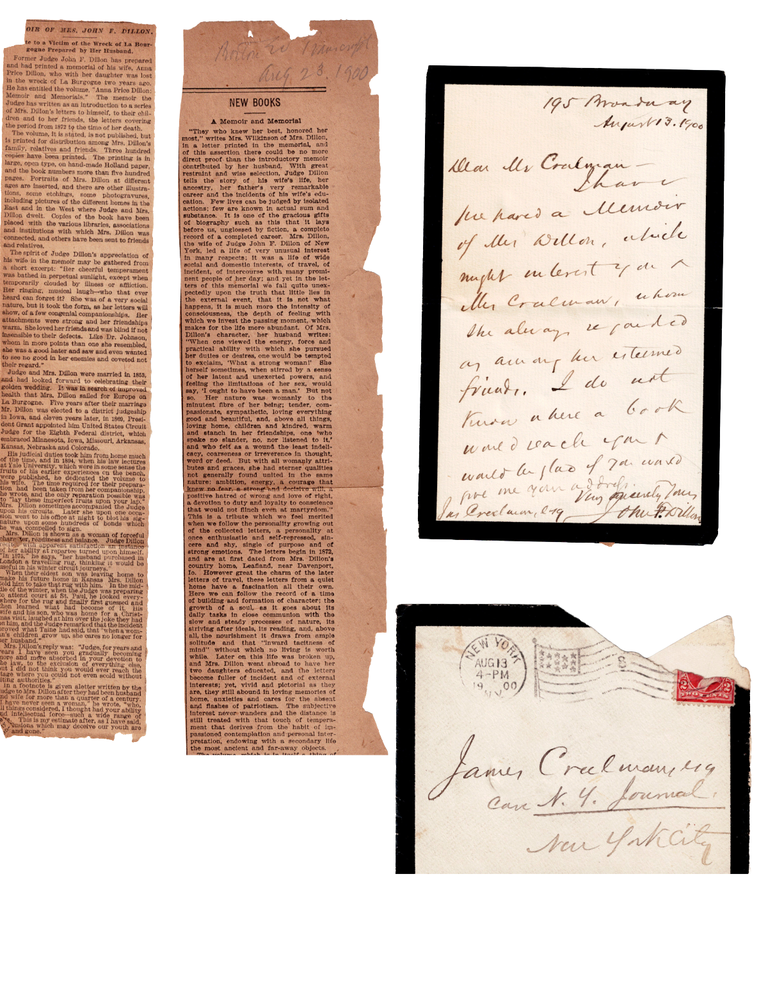 OIR OF MRS. JOHN F. DILLON.
re to a Victim of the Wreck of La Bour-
gogne Prepared by Her Husband.
Former Judge John F. Dillon has prepared
and had printed a memorial of his wife, Anna
Price Dillon, who with her daughter was lost
in the wreck of La Burgogne two years ago.
He has entitled the volume, "Anna Price Dillon:
Memoir and Memorials." The memoir the
Judge has written as an introduction to a series
of Mrs. Dillon's letters to himself, to their chil-
dren and to her friends, the letters covering
the period from 1872 to the time of her death.
The volume, it is stated, is not published, but
is printed for distribution among Mrs. Dillon's
family, relatives and friends. Three hundred
copies have been printed. The printing is in
large, open type, on hand-made Holland paper,
and the book numbers more than five hundred
pages. Portraits of Mrs. Dillon at different
ages are inserted, and there are other illustra-
tions, some etchings, some photogravures,
including pictures of the different homes in the
East and in the West where Judge and Mrs.
Dillon dwelt. Copies of the book have been
placed with the various libraries, associations
and institutions with which Mrs. Dillon was
connected, and others have been sent to friends
and relatives.
The spirit of Judge Dillon's appreciation of
his wife in the memoir may be gathered from
a short excerpt: "Her cheerful temperament
was bathed in perpetual sunshine, except when
temporarily clouded by illness or affliction.
Her ringing, musical laugh—who that ever
heard can forget it? She was of a very social
nature, but it took the form, as her letters will
show, of a few congenial companionships. Her
attachments were strong and her friendships
warm. She loved her friends and was blind if not
insensible to their defects. Like Dr. Johnson,
whom in more points than one she resembled,
she was a good hater and saw and even wanted
to see no good in her enemies and coveted not
their regard."
Judge and Mrs. Dillon were married in 1853,
and had looked forward to celebrating their
golden wedding. It was in search of improved
health that Mrs. Dillon sailed for Europe on
La Burgogne. Five years after their marriage
Mr. Dillon was elected to a district judgeship
in Iowa, and eleven years later, in 1869, Presi-
dent Grant appointed him United States Circuit
Judge for the Eighth Federal district, which
embraced Minnesota, Iowa, Missouri, Arkansas,
Kansas, Nebraska and Colorado.
His judicial duties took him from home much
of the time, and in 1894, when his law lectures
at Yale University, which were in some senses the
fruits of his earlier experiences on the bench,
were published, he dedicated the volume to
his wife. The time required for their prepara-
tion had been taken from her society,
he wrote, and the only reparation possible was
to "lay these imperfect fruits upon your lap."
Mrs. Dillon sometimes accompanied the Judge
upon his circuits.
Mrs. Dillon is shown as a woman of forceful
character, frankness and balance.
NEW BOOKS
A Memoir and Memorial
"They who knew her best, honored her
most," writes Mrs. Wilkinson of Mrs. Dillon,
in a letter printed in the memorial, and
of this assertion there could be no more
direct proof than the introductory memoir
contributed by her husband. With great
restraint and wise selection, Judge Dillon
tells the story of his wife's life, her
ancestry, her father's very remarkable
career and the incidents of his wife's edu-
cation. Few lives can be judged by isolated
actions; few are known in actual sum and
substance. It is one of the gracious gifts
of biography such as this that it lays
before us, unglossed by fiction, a complete
record of a completed career. Mrs. Dillon,
the wife of Judge John F. Dillon of New
York, led a life of very unusual interest
in many respects; it was a life of wide
social and domestic interests, of travel, of
incident, of intercourse with many promi-
nent people of her day; and yet in the let-
ters of this memorial we fall quite unex-
pectedly upon the truth that little lies in
the external event, that it is not what
happens, it is much more the intensity of
consciousness, the depth of feeling with
which we invest the passing moment, which
makes for the life more abundant. Of Mrs.
Dillon's character, her husband writes:
"When one viewed the energy, force and
practical ability with which she pursued
her duties or desires, one would be tempted
to exclaim, 'What a strong woman!' She
herself sometimes, when stirred by a sense
of her latent and unexerted powers, and
feeling the limitations of her sex, would
say, 'I ought to have been a man.' But not
so. Her nature was womanly to the
minutest fibre of her being; tender, com-
passionate, sympathetic, loving everything
good and beautiful, and, above all things,
loving home, children and kindred, warm
and stanch in her friendships, one 'who
spake no slander, no, nor listened to it,'
and who felt as a wound the least indeli-
cacy, coarseness or irreverence in thought,
word or deed. But with all womanly attri-
butes and graces, she had sterner qualities
not generally found united in the same
nature: ambition, energy, a courage that
knew no fear, a strong and decisive will, a
positive hatred of wrong and love of right,
a devotion to duty and loyalty to conscience
that would not flinch even at martyrdom."
This is a tribute which we feel merited
when we follow the personality growing out
of the collected letters, a personality at
once enthusiastic and self-repressed, sin-
cere and shy, single of purpose and of
strong emotions. The letters begin in 1872,
and are at first dated from Mrs. Dillon's
country home, Leafland, near Davenport,
Io. However great the charm of the later
letters of travel, these letters from a quiet
home have a fascination all their own.
Here we can follow the record of a time
of building and formation of character; the
growth of a soul, as it goes about its
daily tasks in close communion with the
slow and steady processes of nature, its
striving after ideals, its reading, and, above
all, the nourishment it draws from ample
solitude and that "inward tastiness of
mind" without which no living is worth
while. Later on this life was broken up,
and Mrs. Dillon went abroad to have her
two daughters educated, and the letters
become fuller of incident and of external
interests; yet, vivid and pictorial as they
are, they still abound in loving memories of
home, anxieties and cares for the absent
and flashes of patriotism. The subjective
interest never wanders and the distance is
still treated with that touch of tempera-
ment that derives from the habit of im-
passioned contemplation and personal inter-
pretation, endowing with a secondary life
the most ancient and far-away objects.
Boston Ev Transcript
Aug. 23. 1900
195 Broadway
August 13. 1900
Dear Mr Creelman—
I have
prepared a Memoir
of Mrs Dillon, which
might interest you &
Mrs Creelman, whom
she always regarded
as among her esteemed
friends. I do not
know where a book
would reach you &
would be glad if you would
give me your address.
Very sincerely Yours
Jas Creelman, esq John F. Dillon
NEW YORK
AUG 13
4-PM
1900
James Creelman, esq
care N. Y. Journal.
New York City